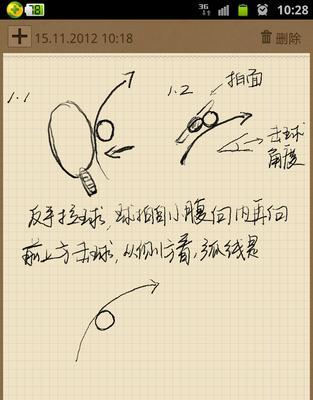 78 3G 10:28
+ 15.11.2012 10:18 删除
1.1 1.2 拍面
击球
角度
反手拉球,球拍向小腹向内再向
前上方击球,从侧方看,弧线是